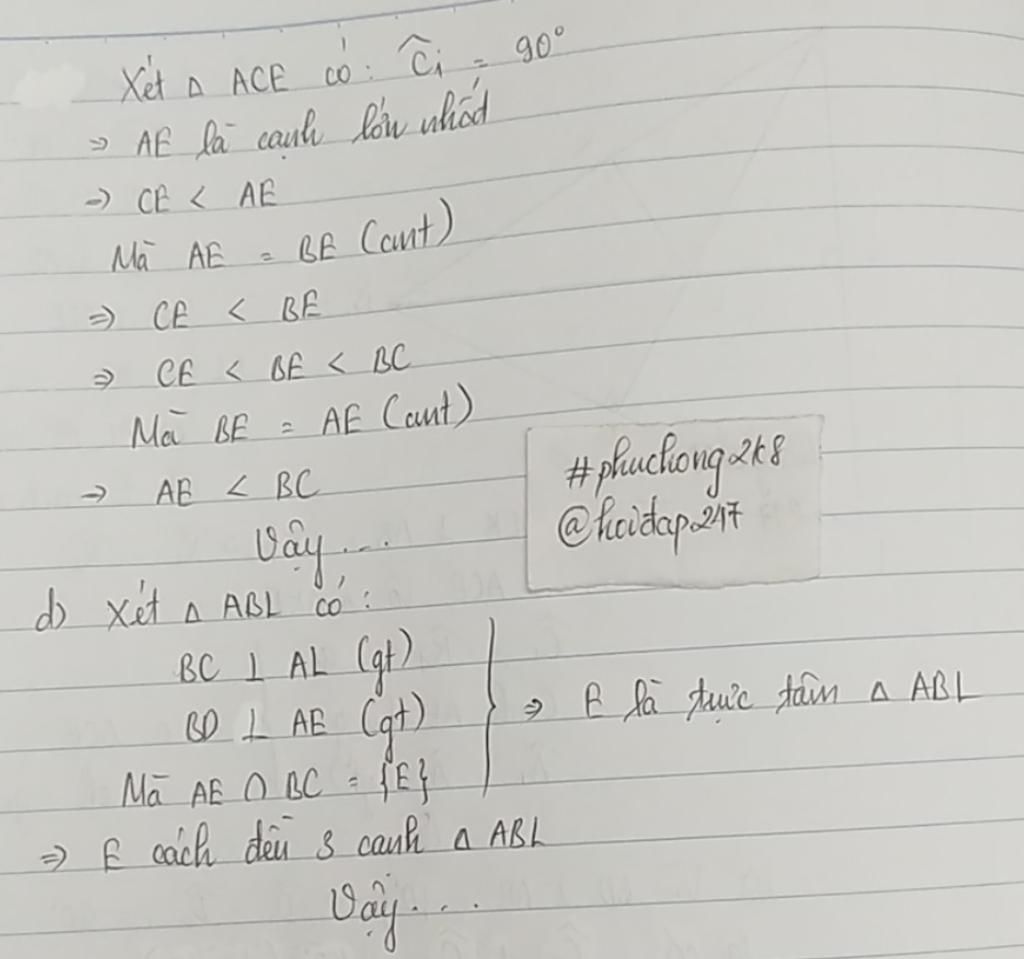 Xét Δ ACE có: Ĉ₁ = 90°
⇒ AE là cạnh lớn nhất
⇒ CE < AE
Mà AE = BE (cmt)
⇒ CE < BE
⇒ CE < BE < BC
Mà BE = AE (cmt)
⇒ AE < BC
Vậy ...
#phuchong2k8
@hoidap247
d) Xét Δ ABL có:
BC ⊥ AL (gt)
BD ⊥ AE (gt)
Mà AE ∩ BC = {E}
⇒ E là trực tâm Δ ABL
⇒ E cách đều 3 cạnh Δ ABL
Vậy ...